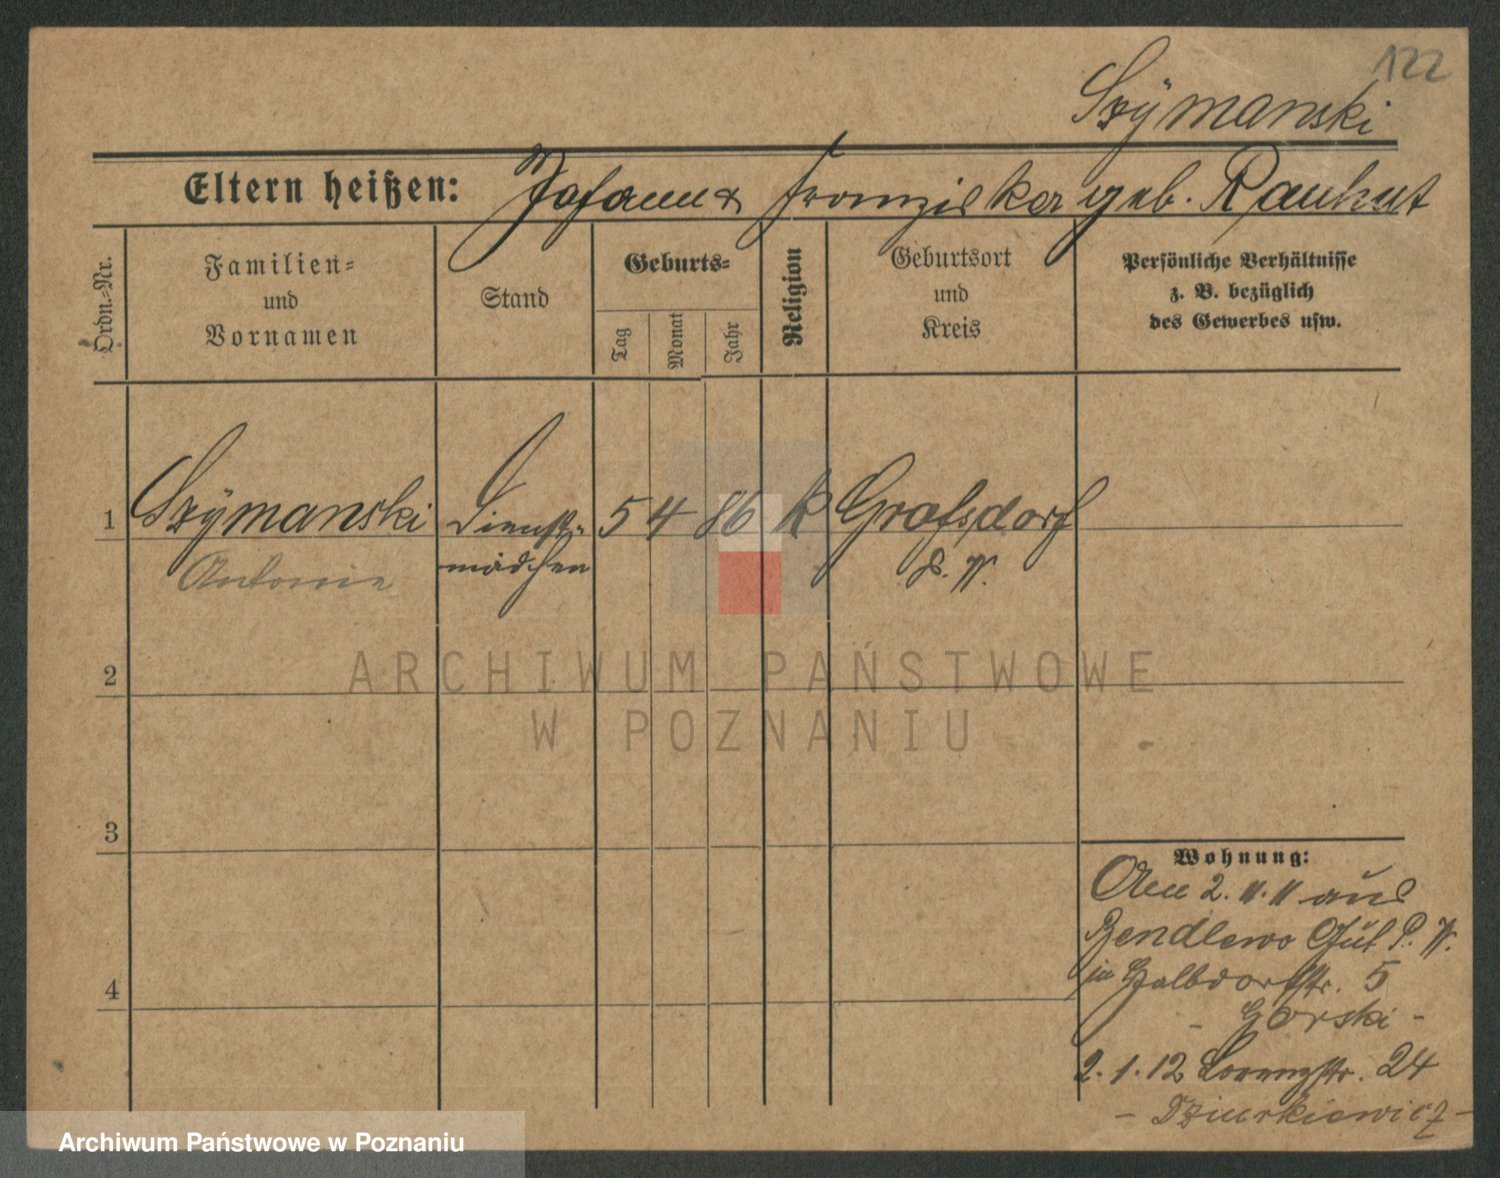 122
Szÿmanski
Eltern heißen: Johann & Franziska geb. Rauhut
Ordn.-Nr.
Familien-
und
Vornamen
Stand
Geburts-
Tag
Monat
Jahr
Religion
Geburtsort
und
Kreis
Persönliche Verhältnisse
z. B. bezüglich
des Gewerbes usw.
1 Szÿmanski Dienst- 5 4 86 k Grafsdorf
Antonie mädchen P. W.
2
3
4
Wohnung:
Am 2.11.11 aus
Bendlewo Gut P. W.
in Halbdorfstr. 5
- Gorski -
2.1.12 Lorenzstr. 24
- Dziurkiewicz -
ARCHIWUM PAŃSTWOWE
W POZNANIU
Archiwum Państwowe w Poznaniu